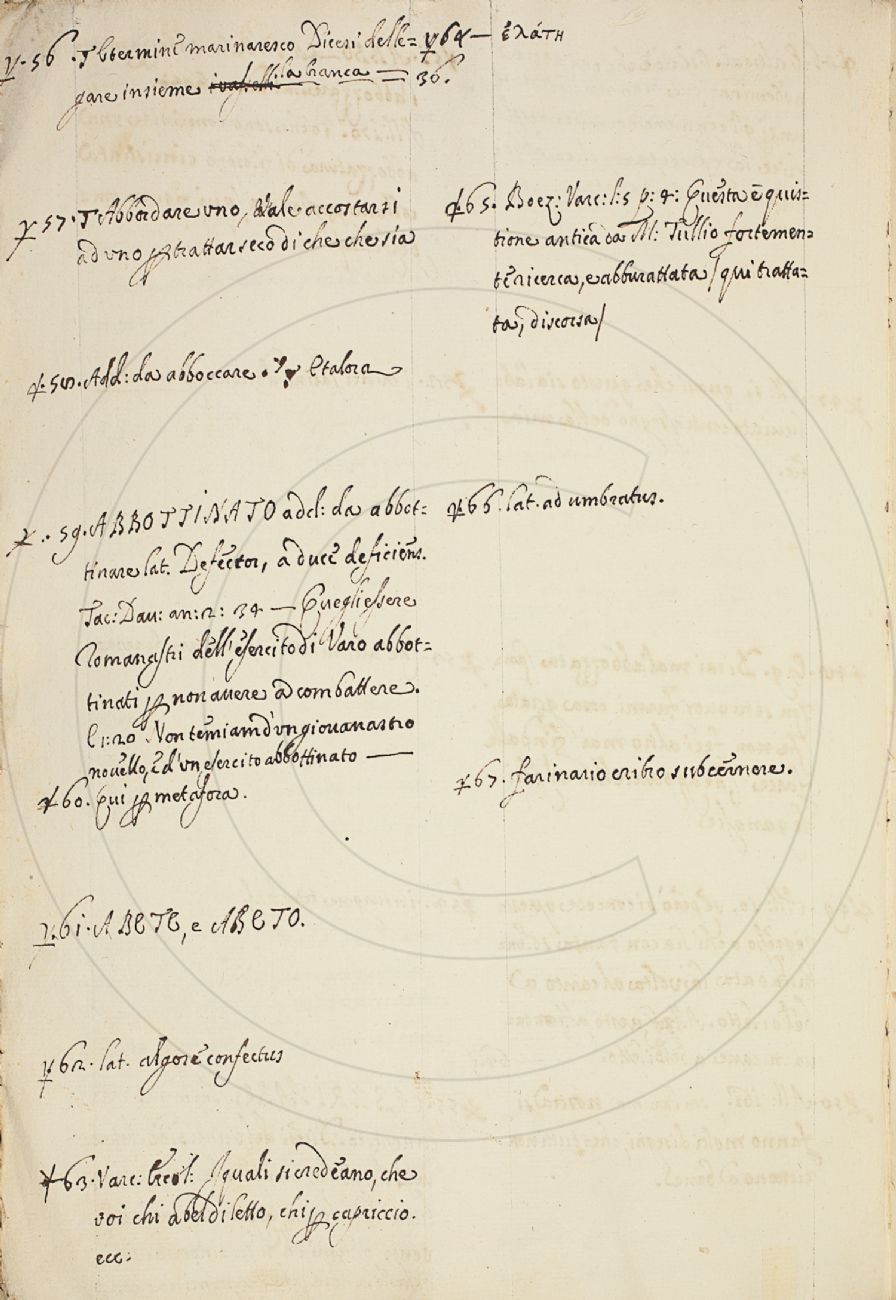 56. T E termine marinaresco Dicesi delle=
gare insieme i vaselli. la branca — 36.
57. T Abbordare uno, Vale accostarsi
ad uno p trattar seco di che che sia
58. Add: da abboccare. E talora
59. ABBOTTINATO add: da abbot=
tinare lat. Defector, a duce deficiens.
Tac: Dav: an: 2: 34 — Quegli essere
Romanastri dell'esercito di Varo abbot=
tinati p non avere a combattere.
E 1: 20 Non temiam d'un giovanastro
novello, e d'un esercito abbottinato —
60. Qui p metafora.
61. ABETE, e ABETO.
62. lat. algore confectus
63. Varc: Ercol: I quali si credeano, che
voi chi a bel diletto, chi p capriccio.
ecc:
64 — ἐλάτη
65. Boez: Varc: l: 5 p: 4: Questa è quis=
tione antica da M: Tullio fortemen=
te ricerca, e abburattata / qui tratta=
ta, discorsa /
66. lat. ad umbratus.
67. farinario cribro subcernere.